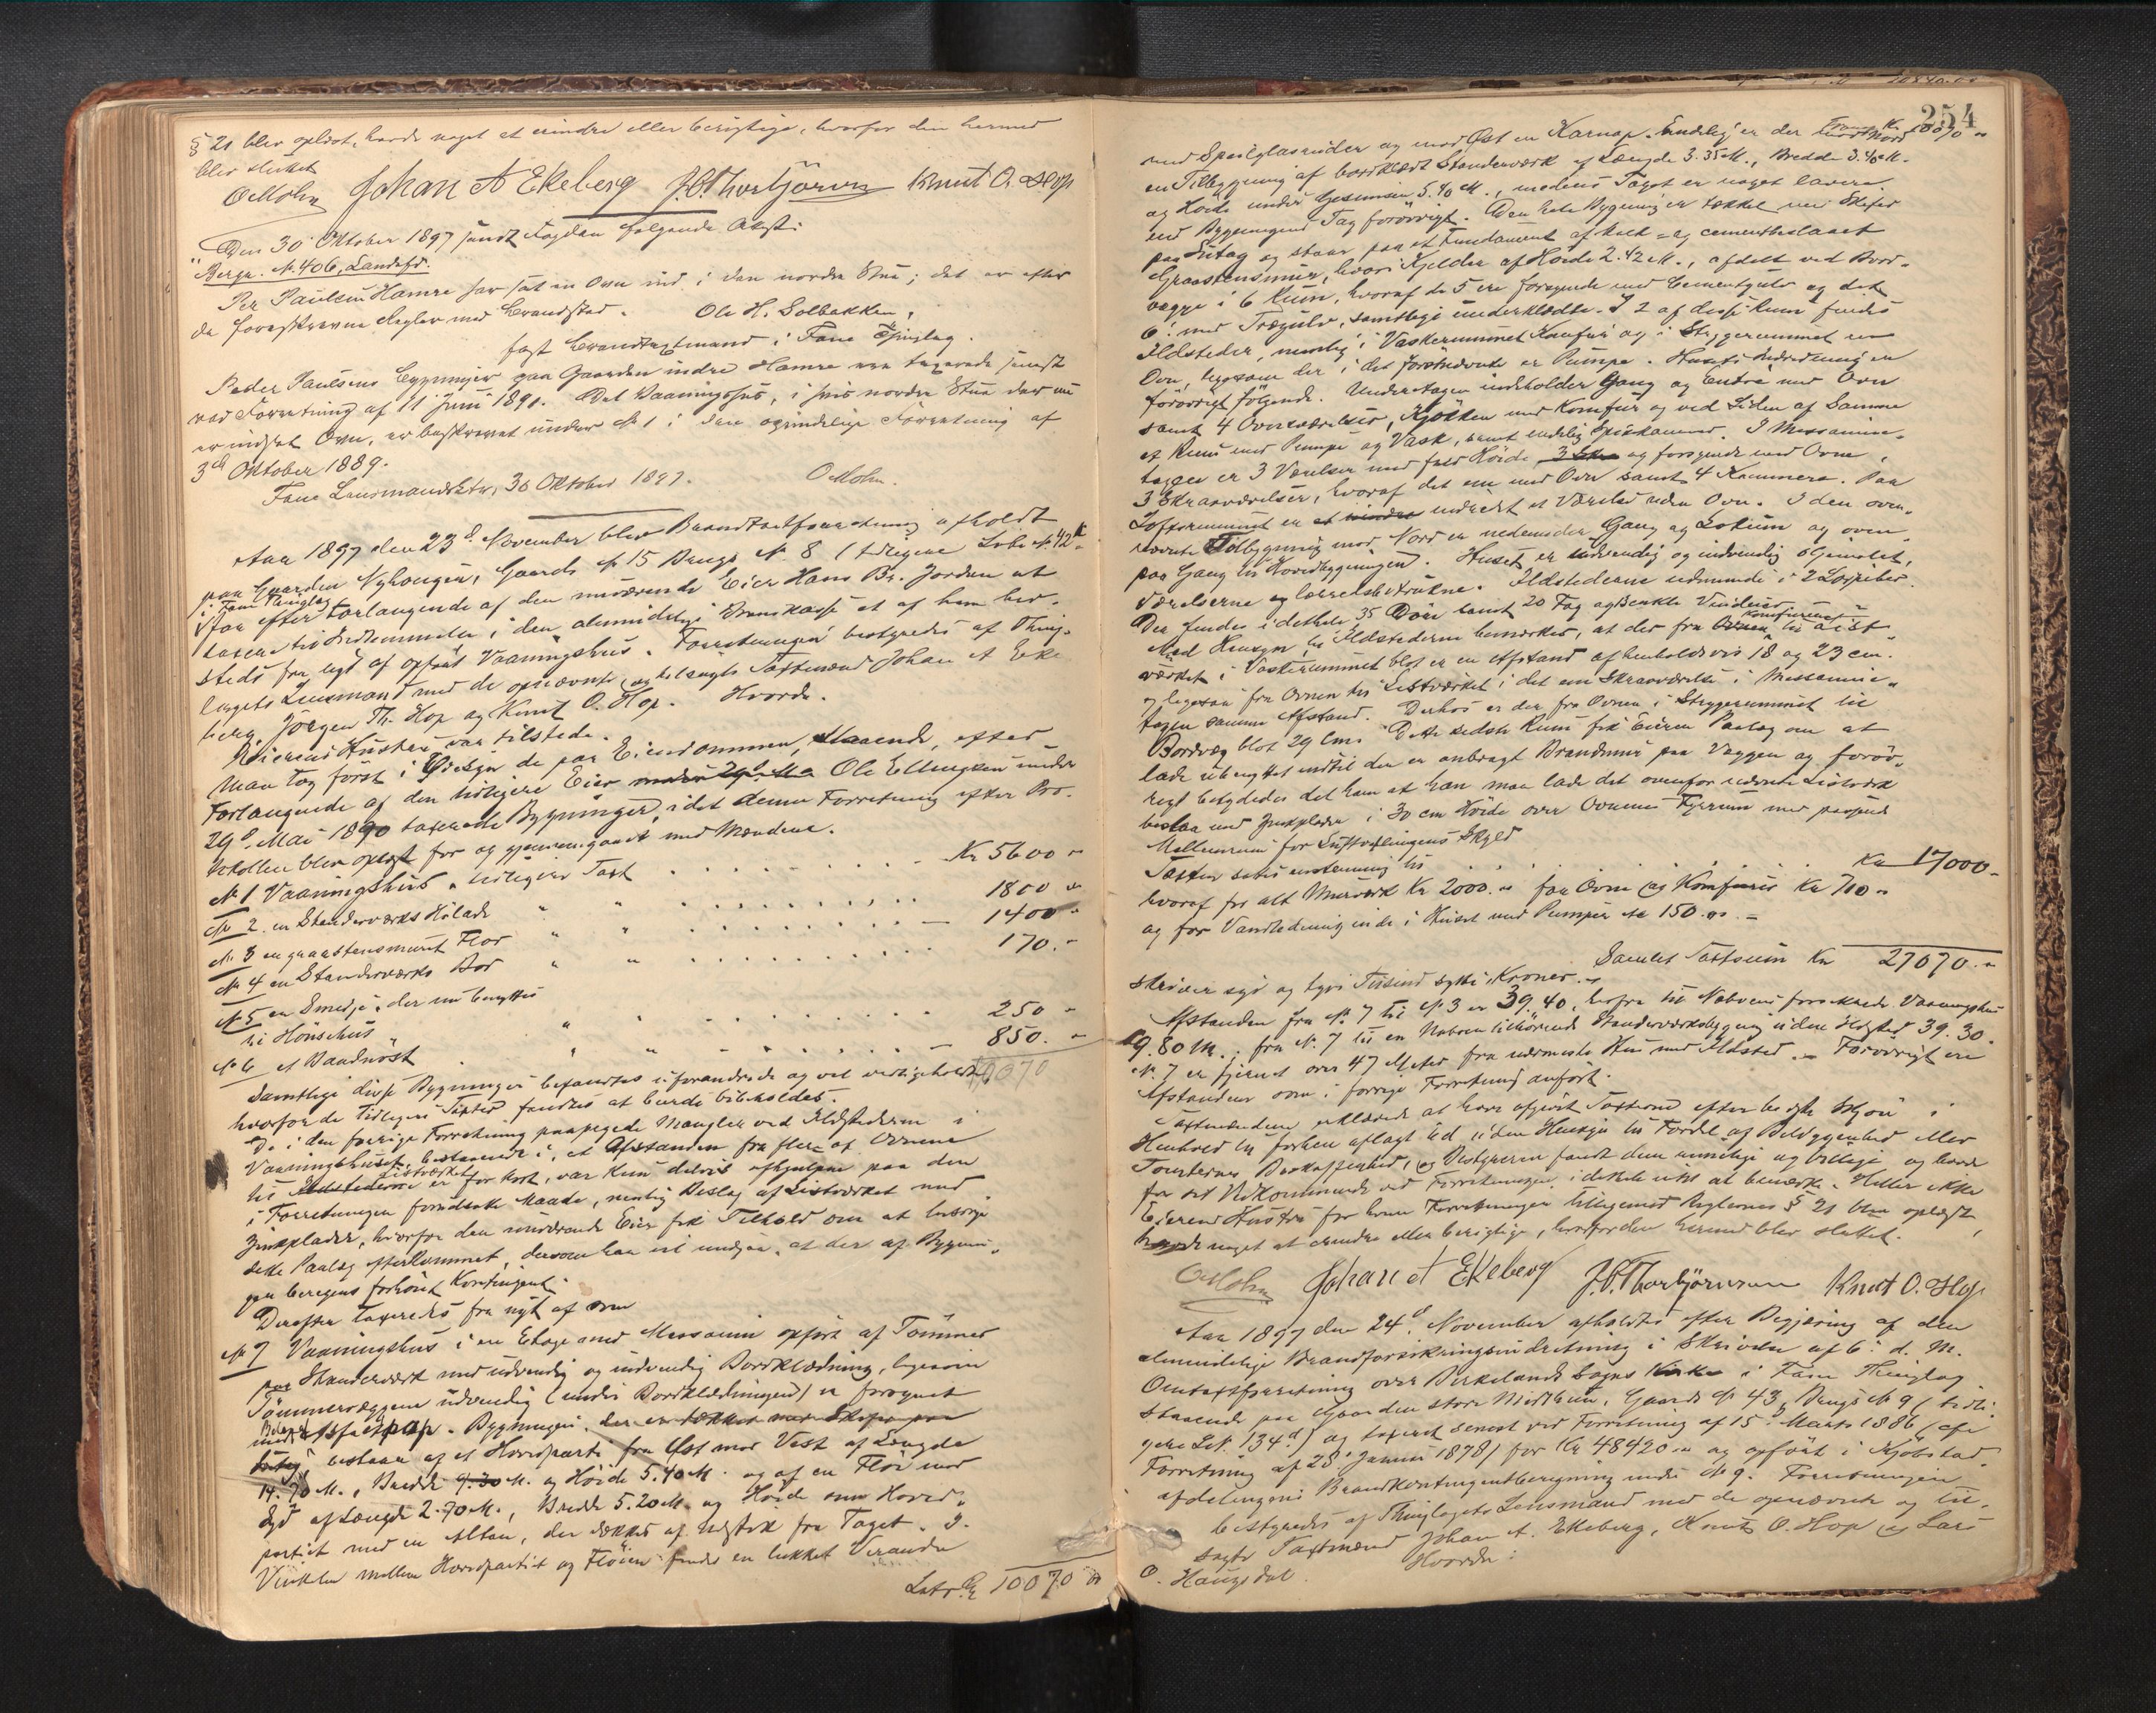 § 21 blev oplæst, havde noget at erindre eller berigtige, hvorfor den hermed
blev sluttet
OMohn Johan A Ekeberg J.O.Thorbjørnsen Knut O. Hop
"Den 30 Oktober 1897 sendt Fogden følgende Attest:
Bergn. No. 406, Landsf.
Per Paulsen Hamre har sat en Ovn ind i den nordre Stue; det er efter
de foreskrevne Regler med Brandstad. Ole H. Solbakken,
fast brandtaxtmand i Fane Thinglag.
Peder Paulsens Bygninger paa Gaarden indre Hamre var taxerede senest
ved Forretning af 11 Juni 1891. Det Vaaningshus, i hvis nordre Stue der nu
er indsat Ovn, er beskrevet under No 1 i den oprindelige Forretning af
3die Oktober 1889.
Fane Lensmandsktr, 30 Oktober 1897. OMohn.
Aar 1897 den 23d November blev Brandtaxtforretning afholdt
paa Gaarden Nyhaugen, Gaards No 15 Brugs No 8 (tidligere Løbe No 42
i Fane Thinglag
for efter Forlangende af den nuværende Eier Hans Br. Jordan at
taxere til Indlemmelse i den almindelige Brandkasse et af ham ber.
steds fra nyt af opført Vaaningshus. Forretningen bestyredes af Thing-
lagets Lensmand med de opnævnte og tilsagte Taxtmænd Johan A Eke
berg, Jørgen Th. Hop og Knut O. Hop. Hvorda.
Eierens Hustru var tilstede.
Man tog først i Øiesyn de paa Eiendommen staaende, efter
Forlangende af den tidligere Eier Ole Ellingsen under
29d Mai 1890 taxerede Bygninger, idet denne Forretning efter Pro-
tokollen blev oplæst for og gjennemgaaet med Mændene.
No 1 Vaaningshus, tidligere Taxt Kr 5600 "
No 2 en Standerværks Hølade " " 1800 "
No 3 en graastensmuret Flor " " 1400 "
No 4 en Standerværks Bod " " 170. "
No 5 en Smedje, der nu benyttes
til Hønsehus " 250 "
No 6 et Vaadnøst " " 850. "
10070
Samtlige disse Bygninger befandtes uforandrede og vel vedligeholdte,
hvorfor de tidligere Taxter fandtes at burde bibeholdes.
De i den forrige Forretning paapegede Mangler ved Ildstederne i
Vaaningshuset, bestaaende i, at Afstanden fra flere af Ovnene
Listværket
til Ildstederne er for kort, var kun delvis afhjulpne paa den
i Forretningen forudsatte Maade, nemlig Beslag af Listværket med
Zinkplader, hvorfor den nuværende Eier fik Tilhold om at besørge
dette Paalæg efterkommet, dersom han vil undgaa, at der af Bygnin-
gen beregnes forhøiet Kontingent.
Derefter taxeredes fra nyt af som
No 7 Vaaningshus i en Etage med Messanin opført af Tømmer
paa Standerværk med udvendig og indvendig Bordklædning, ligesom
Tømmervæggene udvendig (under Bordklædningen) er forsynet
med Asfaltpap. Bygningen, der er tækket med Skifer paa
Sutag bestaar af et Hovedparti fra Øst mod Vest af Længde
14.70 M., Bredde 9.30 M. og Høide 5.40 M. og af en Fløi mod
Syd af Længde 2.70 M., Bredde 5.20 M. og Høide som Hoved-
partiet med en Altan, der dækkes af Udstik fra Taget. I
Vinkelen mellem Hovedpartiet og Fløien findes en lukket Veranda
Lats. Kr 10070 "
254
Transp. Kr 10070 "
med Speilglasruder og mod Øst en Karnap. Endelig er der mod Nord
en Tilbygning af bordklædt Standerværk af Længde 3.35 M., Bredde 3.40 M.
og Høide under Gesimsen 5.40 M., medens Taget er noget lavere
end Bygningens Tag forøvrigt. Den hele Bygning er tækket med Skifer
paa Sutag og staar paa et Fundament af kalk- og cementbeslaaet
Graastensmur, hvori Kjelder af Høide 2.42 M., afdelt ved Bord-
vægge i 6 Rum, hvoraf de 5 ere forsynede med Cementgulv og det
6. med Trægulv, samtlige underklædte. I 2 af disse Rum findes
Ildsteder, nemlig i Vaskerummet Komfur og i Strygerummet en
Ovn, ligesom der i det førstnævnte er Pumpe. Husets Indredning er
forøvrigt følgende. Underetagen indeholder Gang og Entre med Ovn
samt 4 Ovnsværelser, Kjøkken med Komfur og ved Siden af Samme
et Rum med Pumpe og Vask, samt endelig Spiskammer. I Messanin-
etagen er 3 Værelser med fuld Høide og forsynede med Ovne,
3 Skraaværelser, hvoraf det ene med Ovn samt 4 Kammere. Paa
Loftsrummet er indredet et Værelse uden Ovn. I den oven-
nævnte Tilbygning mod Nord er nedenunder Gang og Lokum og oven-
paa Gang til Hovedbygningen. Huset er udvendig og indvendig oljemalet,
Værelserne og lærredsbetrukne. Ildstederne udmunde i 2 Løbpiber.
Der findes i dethele 35 Døre samt 20 Fag og enkle Vinduer
Komfuret
Med Hensyn til Ildstederne bemærkes, at der fra Ovnen til List-
værket i Vaskerummet blot er en Afstand af henholdsvis 18 og 23 cm.
og ligesaa fra Ovnen til Listværket i det ene Skraaværelse i Messanin-
etagen samme Afstand. Derhos er der fra Ovnen i Strygerummet til
Bordvæg blot 29 Cm. Dette sidste Rum fik Eieren Paalæg om at
lade ubenyttet indtil der er anbragt Brandmur paa Væggen og forøv-
rigt betydedes det ham at han maa lade det ovenfor nævnte Listværk
beslaa med Zinkplader i 30 cm Høide over Ovnenes Fyrrum med passende
Mellemrum for Luftvexlingens Skyld
Taxten sattes enstemmig til Kr 17000.
hvoraf for alt Murværk Kr 2000. " for Ovne og Komfurer Kr 700 "
og for Vandledning inde i Huset med Pumper etc 150. "
Samlet Taxtsum Kr 27070. "
skriver syv og tyve Tusind sytti Kroner.
Afstanden fra No 7 til No 3 er 39,40, herfra til Naboens forsikrede Vaaningshus
9.80 M.; fra No. 7 til en Naboen tilhørende Standerværksbygning uden Ildsted 39.30.
No. 7 er fjernet over 47 Meter fra nærmeste Hus med Ildsted. Forøvrigt ere
Afstandene som i forrige Forretning anført.
Taxtmændene erklærede at have afgivet Taxterne efter bedste Skjøn i
Henhold til forhen aflagt Ed uden Hensyn til Fordel af Beliggenhed eller
Tomternes Beskaffenhed, og Bestyreren fandt dem rimelige og billige og havde
for sit Vedkommende ved Forretningen i dethele intet at bemærke. Heller ikke
Eierens Hustru for hvem Forretningen tilligemed Reglernes § 21 blev oplæst,
havde noget at erindre eller berigtige, hvorfor den hermed blev sluttet.
OMohn Johan A Ekeberg J.O.Thorbjørnsen Knut O. Hop
Aar 1897 den 24d. November afholdtes efter Begjæring af den
almindelige Brandforsikringsindretning i Skrivelse af 6. d. M.
Omtaxtforretning over Birkelands Sogns Kirke i Fane Thinglag
staaende paa Gaarden store Midttun, Gaards No 43, Brugs No 9 (tidli-
gere Lit. 134 d) og taxeret senest ved Forretning af 15. Marts 1886 (cfr
Forretning af 28. Januar 1878) for Kr 48420 " og opført i Kjøbstad-
afdelingens Brandkontingentberegning under No 9. Forretningen
bestyredes af Thinglagets Lensmand med de opnævnte og til-
sagte Taxtmænd Johan A. Ekeberg, Knut O. Hop og Lars
O. Haugsdal. Hvorda: